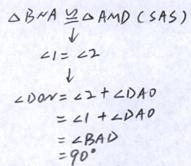 △BNA ≌ △AMD (SAS)
↓
∠1 = ∠2
↓
∠DON = ∠2 + ∠DAO
= ∠1 + ∠DAO
= ∠BAD
= 90°